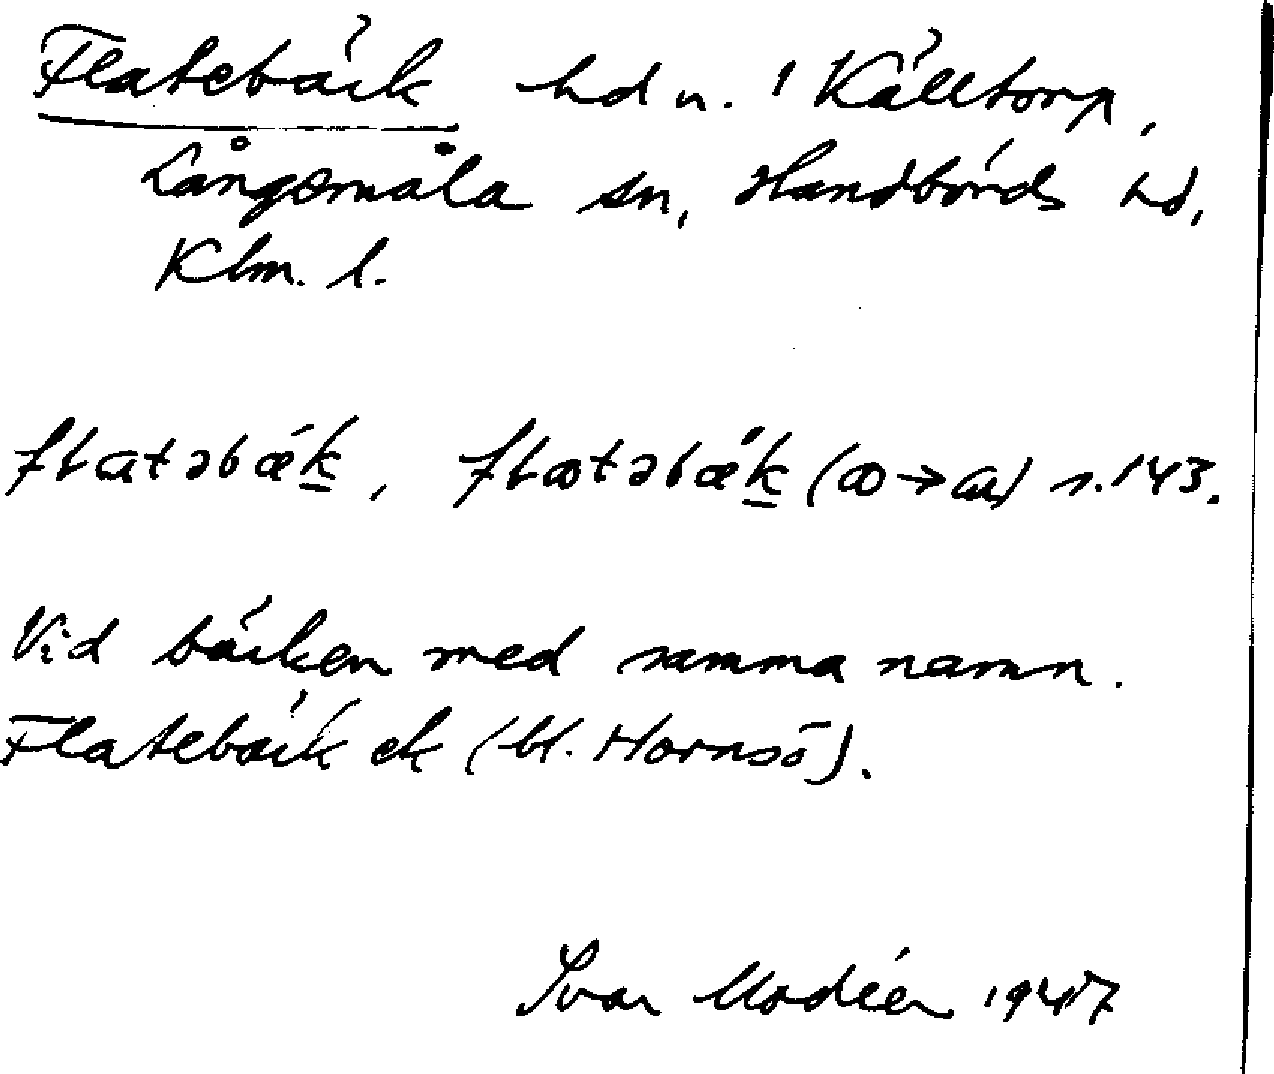 Flatebäck hdn. i Källtorp,
Långemåla sn, Handbörds hd,
Klm. l.
flatəbæk, flatəbæk (a→a) s. 143.
Vid bäcken med samma namn.
Flatebäck ek (bl. Hornsö).
Ivar Modéer 1947